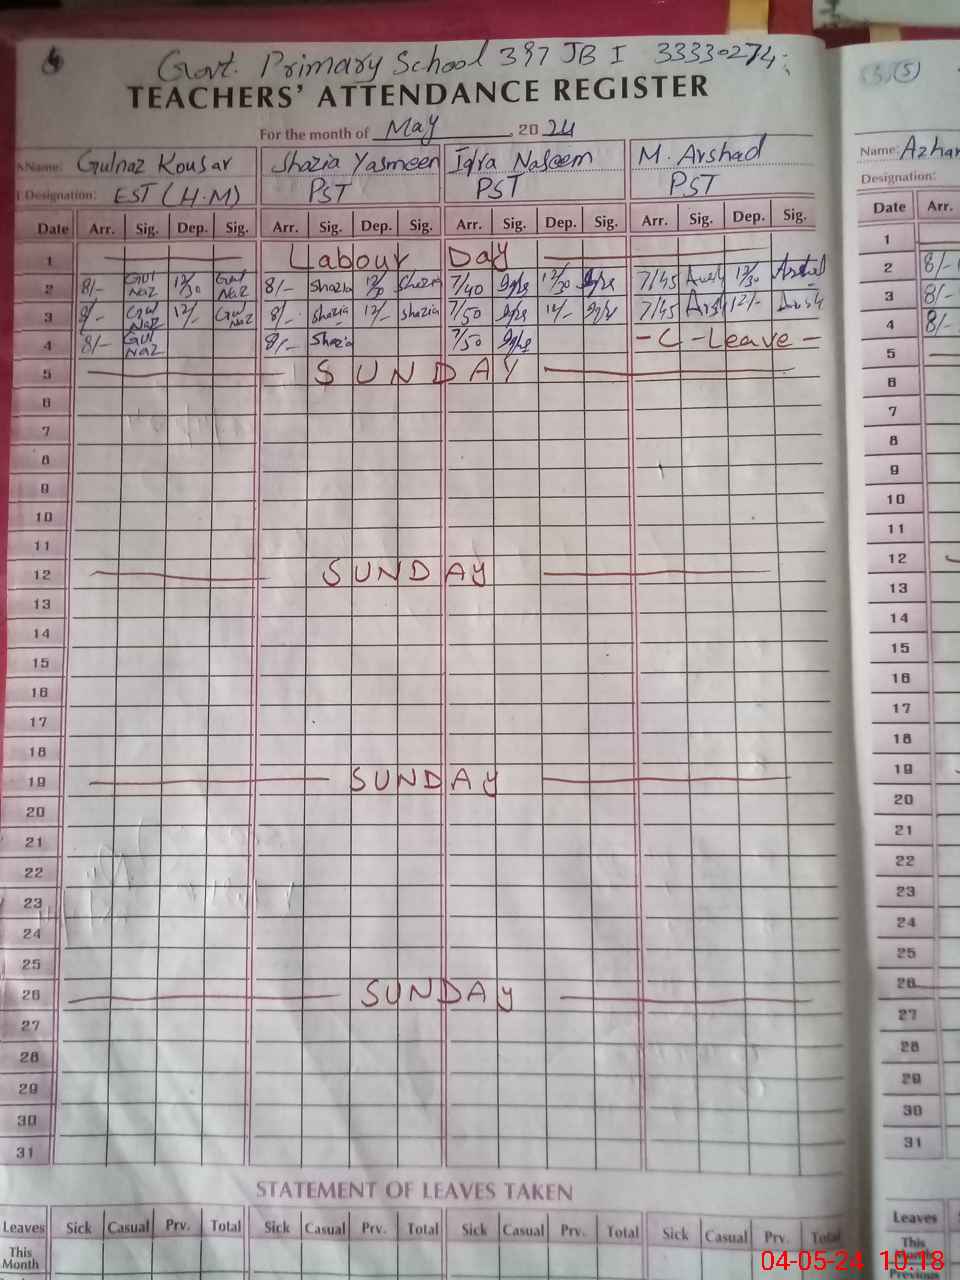 Govt. Primary School 397 JB I 33330274
(5)
TEACHERS' ATTENDANCE REGISTER
For the month of May, 2024
Name: Gulnaz Kousar Shazia Yasmeen Iqra Naseem M. Arshad Name: Azhar
Designation: EST (H.M) PST PST PST Designation:
Date Arr. Sig. Dep. Sig. Arr. Sig. Dep. Sig. Arr. Sig. Dep. Sig. Arr. Sig. Dep. Sig. Date Arr.
1 Labour Day 1
2 8/- Gul Naz 12/30 Gul Naz 8/- Shazia 12/30 Shazia 7/40 Iqra 12/30 Iqra 7/45 Arshad 12/30 Arshad 2 8/-
3 8/- Gul Naz 12/- Gul Naz 8/- Shazia 12/- Shazia 7/50 Iqra 12/- Iqra 7/45 Arsh 12/- Arsh 3 8/-
4 8/- Gul Naz 8/- Shazia 7/50 Iqra - C - Leave - 4 8/-
5 SUNDAY 5
6 6
7 7
8 8
9 9
10 10
11 11
12 SUNDAY 12
13 13
14 14
15 15
16 16
17 17
18 18
19 SUNDAY 19
20 20
21 21
22 22
23 23
24 24
25 25
26 SUNDAY 26
27 27
28 28
29 29
30 30
31 31
STATEMENT OF LEAVES TAKEN
Leaves Sick Casual Prv. Total Sick Casual Prv. Total Sick Casual Prv. Total Sick Casual Prv. Total Leaves
This Month This Month
Previous
04-05-24 10:18